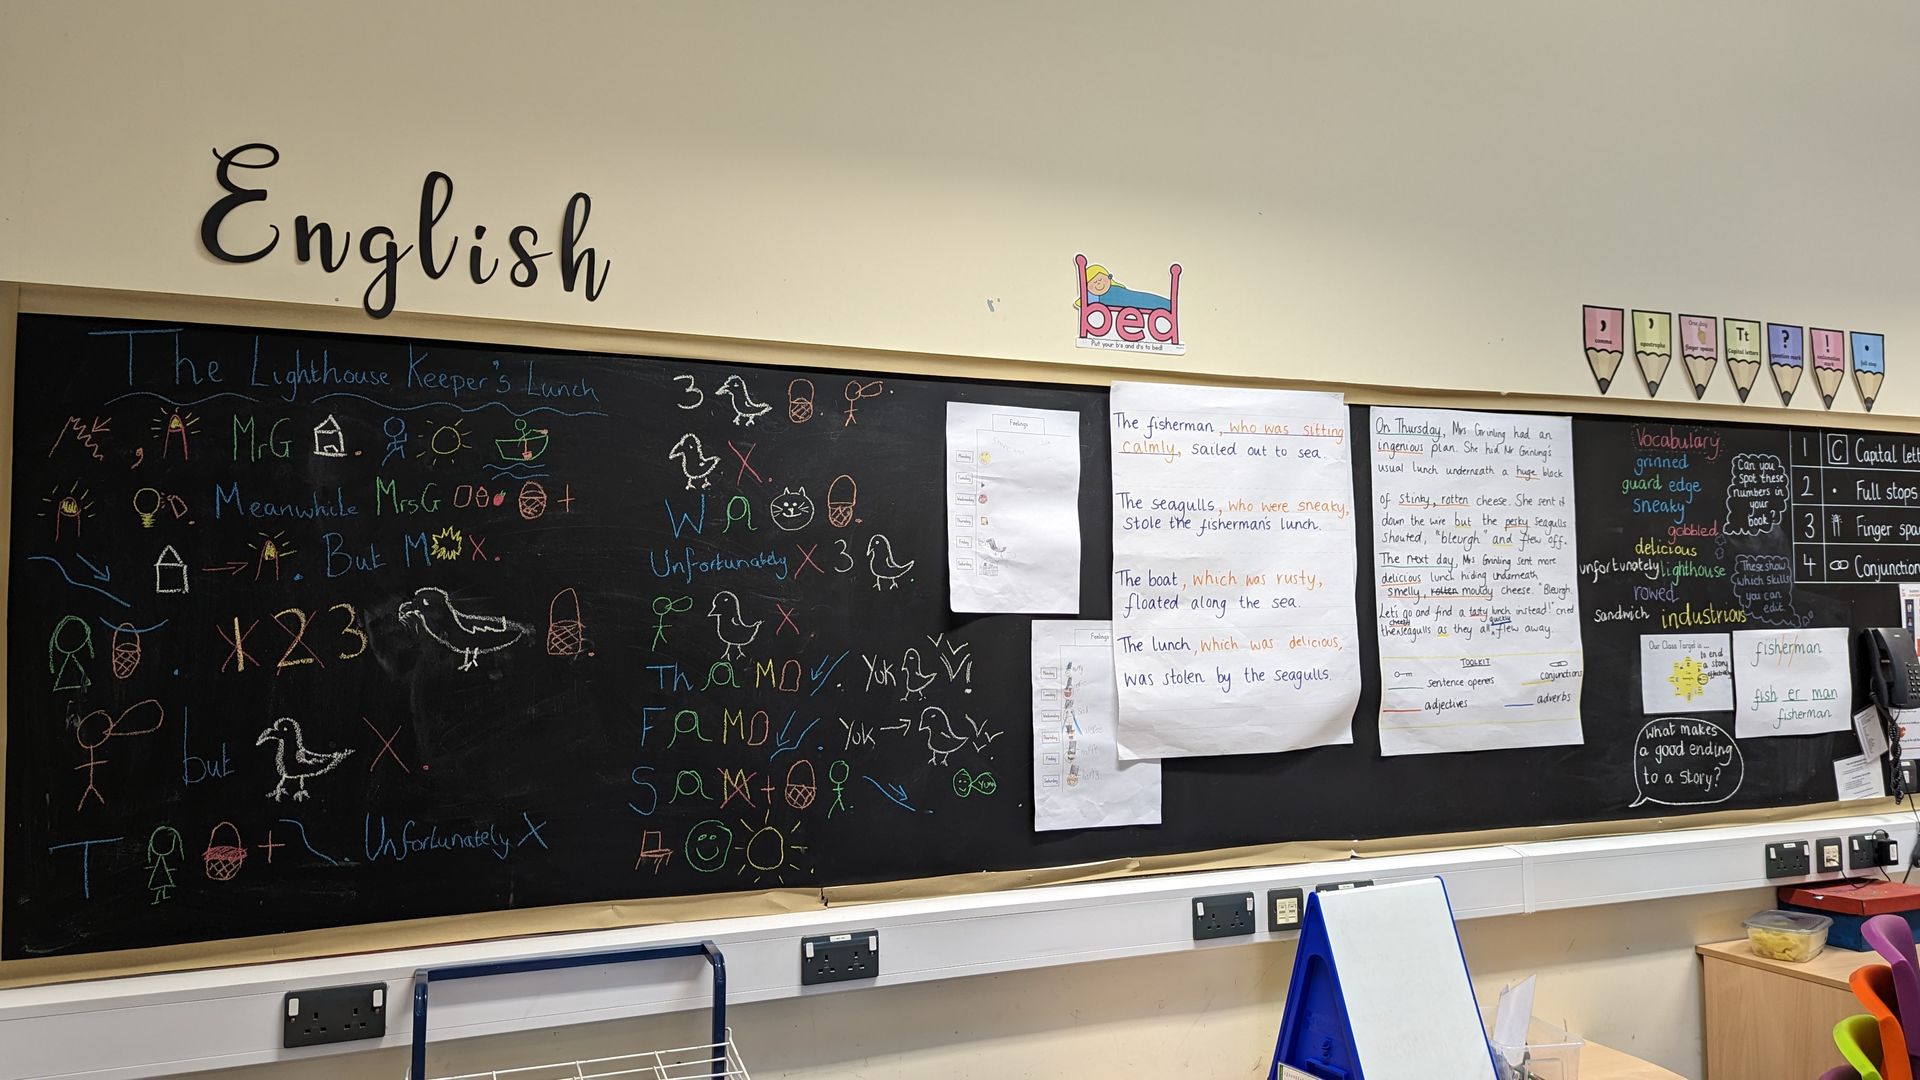 English
bed
Put your b's and d's to bed!
,
comma
'
apostrophe
finger spaces
Tt
Capital letters
?
question mark
!
exclamation mark
.
full stop
The Lighthouse Keeper's Lunch
, MrG .
Meanwhile MrsG +
. But M X.
. X 2 3 .
but X.
T + . Unfortunately X
3 . .
X.
W a .
Unfortunately X 3 .
X.
Th a M . Yuk
F a M . Yuk →
S a M + . Yum
.
Feelings
Monday
Tuesday
Wednesday
Thursday
Friday
Saturday
Feelings
Monday
Tuesday
Wednesday
Thursday
Friday
Saturday
The fisherman, who was sitting
calmly, sailed out to sea.
The seagulls, who were sneaky,
stole the fisherman's lunch.
The boat, which was rusty,
floated along the sea.
The lunch, which was delicious,
was stolen by the seagulls.
On Thursday, Mrs Grinling had an
ingenious plan. She hid Mr Grinling's
usual lunch underneath a huge block
of stinky, rotten cheese. She sent it
down the wire but the pesky seagulls
shouted, "bleurgh" and flew off.
The next day, Mrs Grinling sent more
delicious lunch hiding underneath
smelly, rotten mouldy cheese. "Bleurgh.
Let's go and find a tasty lunch instead!" cried
cheeky quickly
the seagulls as they all flew away.
TOOLKIT
sentence openers
conjunctions
adjectives
adverbs
Vocabulary
grinned
guard edge
sneaky
gobbled
delicious
unfortunately lighthouse
rowed
sandwich industrious
Can you
spot these
numbers in
your
book?
These show
which skills
you can
edit.
1 C Capital lett
2 . Full stops
3 Finger spa
4 Conjunction
Our Class Target is ...
to end
a story
effectively
fisherman
fish er man
fisherman
What makes
a good ending
to a story?